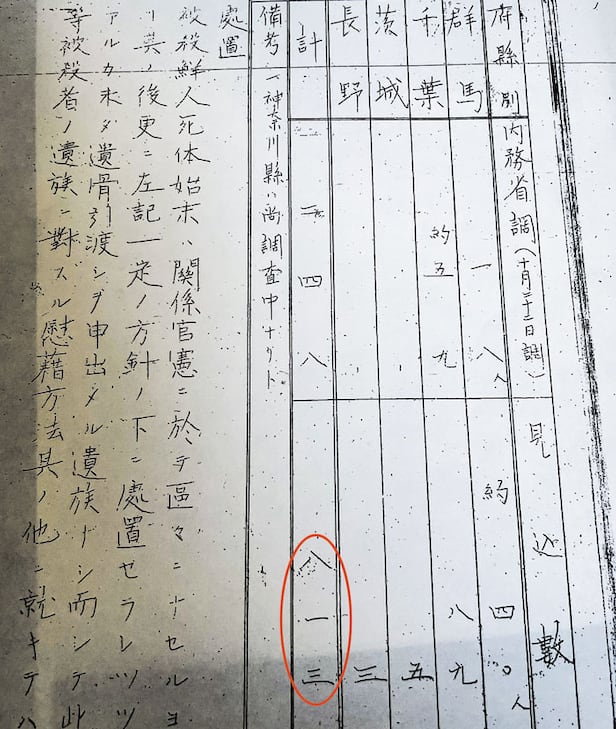 府縣別 内務省調(十月二十二日調) 見込數
群馬 一八人 約四〇人
千葉 約五九 八九
茨城 五
長野 三
計 二四八 八一三
備考 一神奈川縣ハ尚調査中ナリト
處置
被殺鮮人死体始末ハ關係官憲ニ於テ區々ニナセルヨ
リ其ノ後更ニ左記一定ノ方針ノ下ニ處置セラレツツ
アルカ未ダ遺骨引渡シヲ申出ヅル遺族ナシ而シテ此
等被殺者ノ遺族ニ對スル慰藉方法其ノ他ニ就キテハ